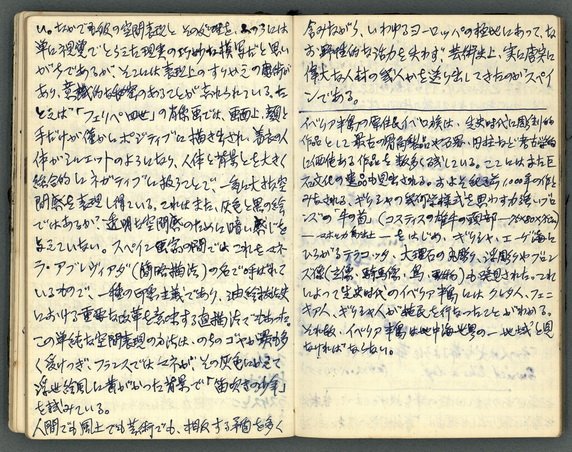 い。なかでも彼の空間表現とその処理を、このうちには
単に視覚でとらえた現実の巧妙な模写だと思い
がちであるが、そこには表現上のすりやえの画術が
あり、意識的なのあることが忘れられている。た
とえば「フェリペ四世」の肖像画では、画面上、顔と
手だけが僅かにポジティブに描き出され、着衣の人
体がシルエットのようになり、人体と背景とを大きく
総合的にネガティブに扱うことで、一気に大きな空
間感を表現し得ている。これはまた、灰色と黒の絵
ではあるが、透明な空間感のために暗い感じを
与えていない。スペイン画家の間では、これをマネ
ラ・アブレヴィアダ(簡略描法)の名で呼ばれて
いるもので、一種の印象主義であり、油絵技法史
における重要な改革を意味する直描法でもあった。
この単純な空間表現の方法は、のちのゴヤが最も多
く受けつぎ、フランスではマネが、その灰色にかえて
浮世絵風に黄がかった背景で「笛吹きの少年」
を試みている。
人間でも風土でも芸術でも、相反する両面を多く
含みながら、いわゆるヨーロッパの極地にあって、な
お野性的な活力を失わず、芸術史上、実に着実に
偉大な人材の幾人かを送り出してきたのがスペイ
ンである。
イベリア半島の原住民イベロ族は、先史時代に周到な
作品として最古の騎商製品や石器、円柱など考古学的
に価値ある作品を数多く残している。ここにはまた巨
石文化の遺品も見出される。およそ紀元前1000年の作と
みなされる、ギリシャの幾何学様式を思わす力強いブロ
ンズの「牛の首」(コスティスの雄牛の頭部
をはじめ、ギリシャ、エーゲ海に
ひろがるテラコッタ、大理石の丸彫り、浮彫りやブロン
ズ像(立像、騎馬像、鳥、)も発見された。これ
によって先史時代のイベリア半島にはクレタ人、フェニ
キア人、ギリシャ人が植民を行なったことがわかる。
それ故、イベリア半島は地中海世界の一地域と見
なければならない。